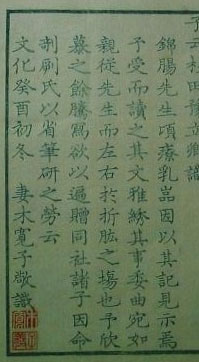 錦腸先生頃療乳嵒因以其記見示焉
予受而讀之其文雅絳其事委曲宛如
親從先生而左右於折肱之場也予欣
慕之餘謄寫欲以遍贈同社諸子因命
剞劂氏以省筆研之勞云
文化癸酉初冬　妻木寬子敬識